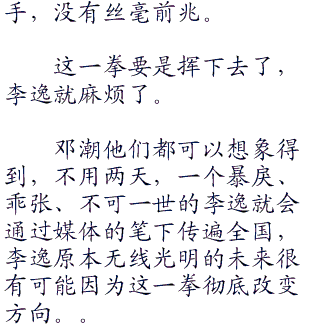 手，没有丝毫前兆。
这一拳要是挥下去了，
李逸就麻烦了。
邓潮他们都可以想象得
到，不用两天，一个暴戾、
乖张、不可一世的李逸就会
通过媒体的笔下传遍全国，
李逸原本无线光明的未来很
有可能因为这一拳彻底改变
方向。。